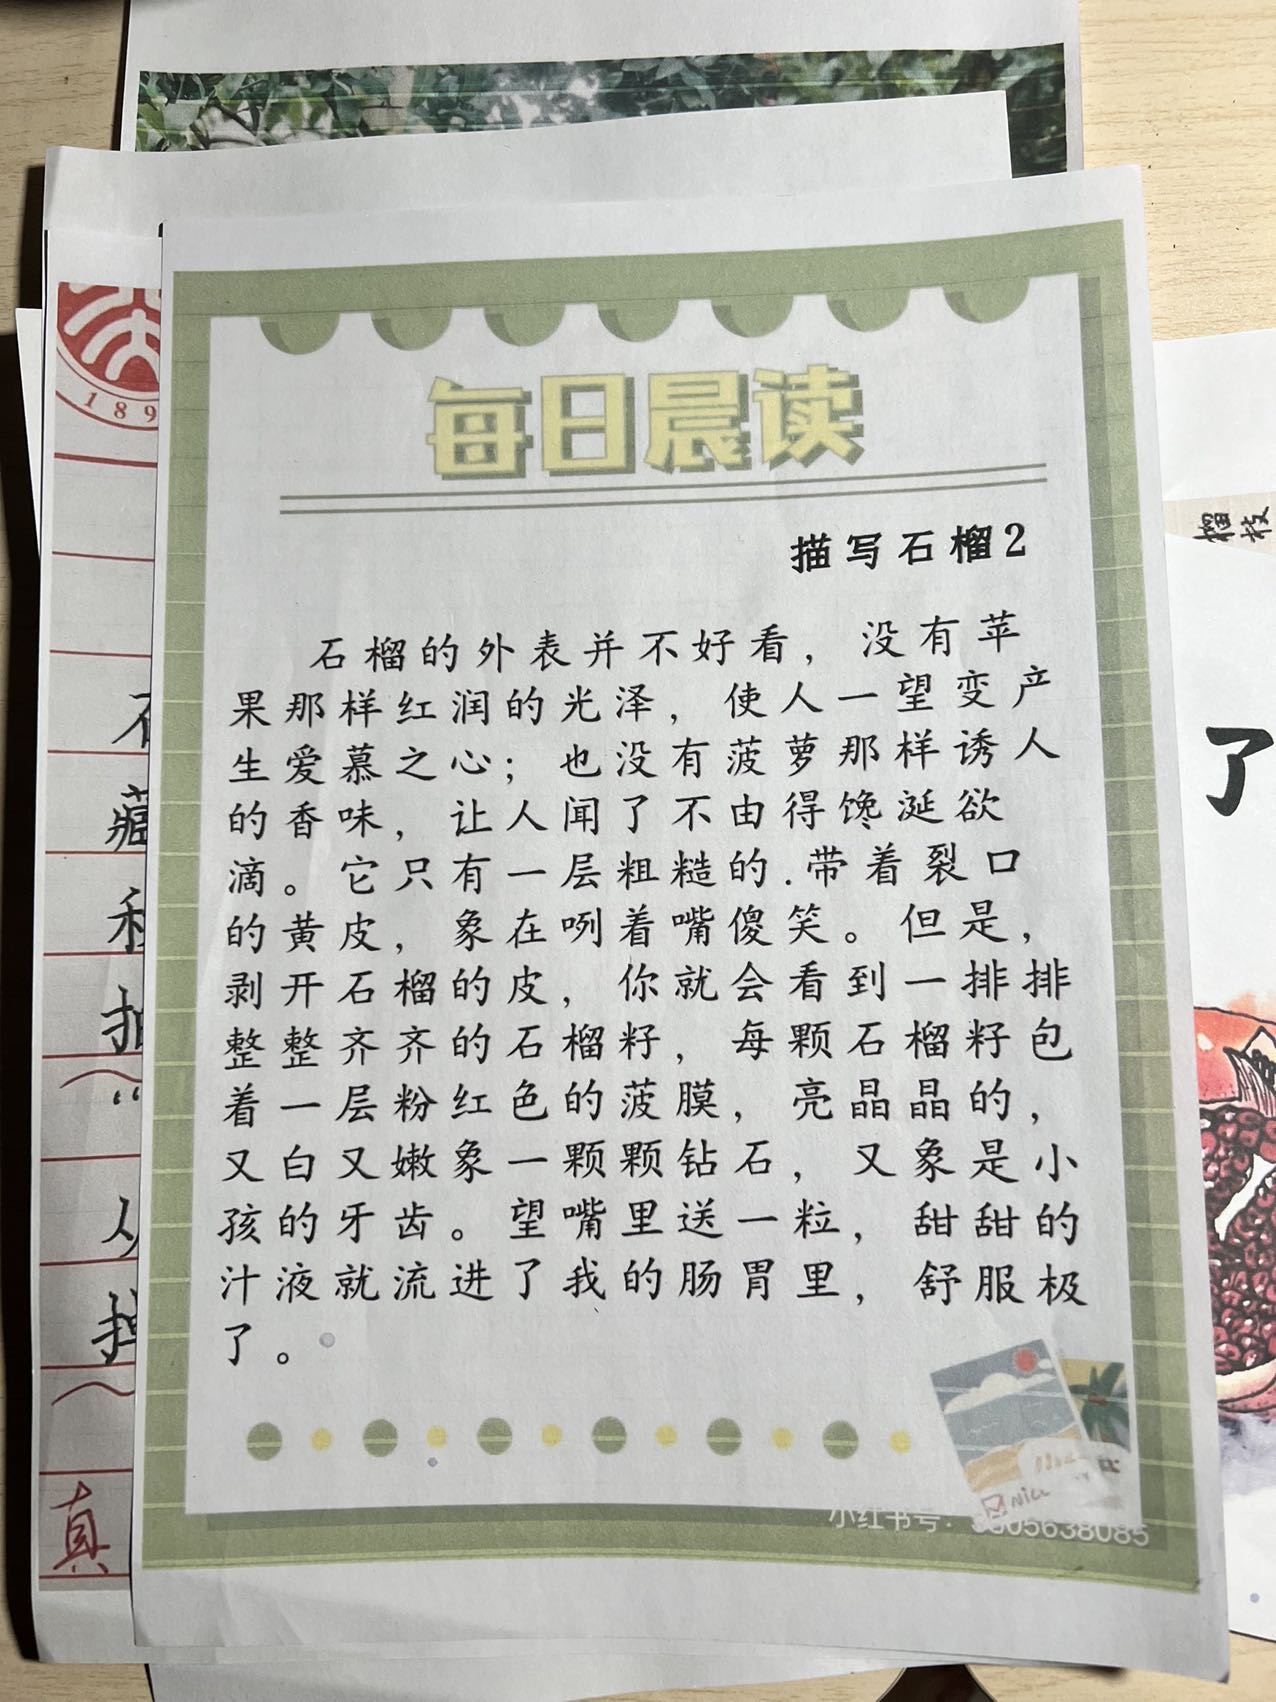 每日晨读
描写石榴2
石榴的外表并不好看，没有苹
果那样红润的光泽，使人一望变产
生爱慕之心；也没有菠萝那样诱人
的香味，让人闻了不由得馋涎欲
滴。它只有一层粗糙的.带着裂口
的黄皮，象在咧着嘴傻笑。但是，
剥开石榴的皮，你就会看到一排排
整整齐齐的石榴籽，每颗石榴籽包
着一层粉红色的菠膜，亮晶晶的，
又白又嫩象一颗颗钻石，又象是小
孩的牙齿。望嘴里送一粒，甜甜的
汁液就流进了我的肠胃里，舒服极
了。
小红书号：
NICE
189
真
榴枝
了